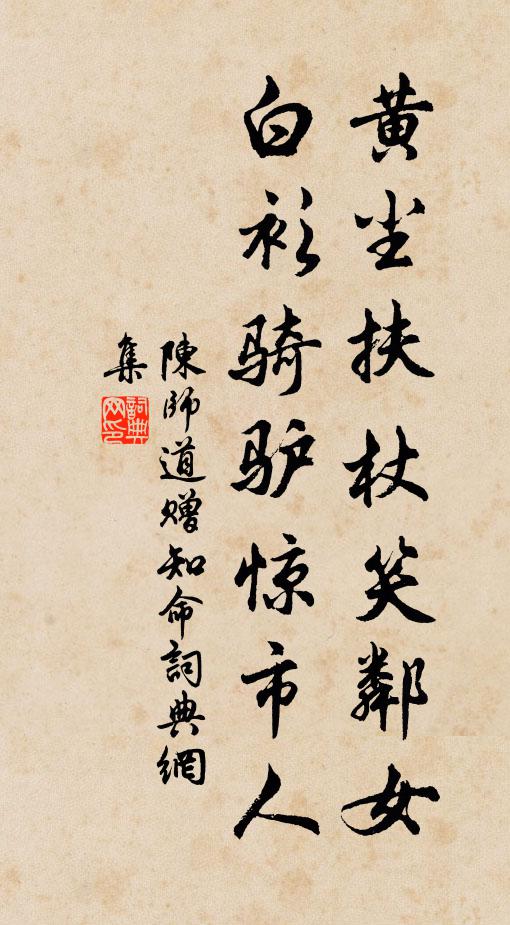 黄尘扶杖笑鄰女
白衫骑驴惊市人
陳師道赠知命詞典網
集
詞典网印